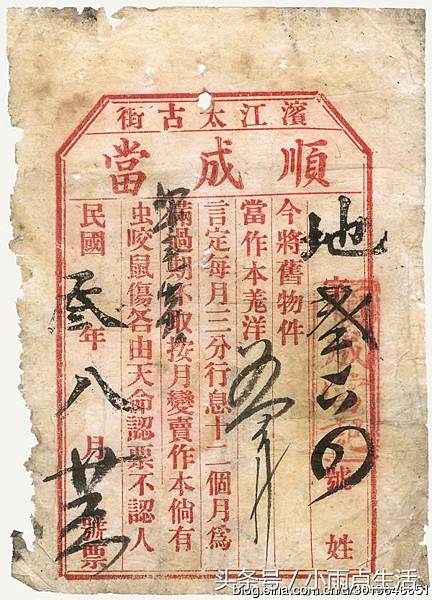 濱江太古街
順成當
地 號 姓
今將舊物件
當作本羗洋
言定每月三分行息十二個月爲
滿過期不取按月變賣作本倘有
虫咬鼠傷各由天命認票不認人
民國 年 八 月 號票
头条号 / 小雨点生活